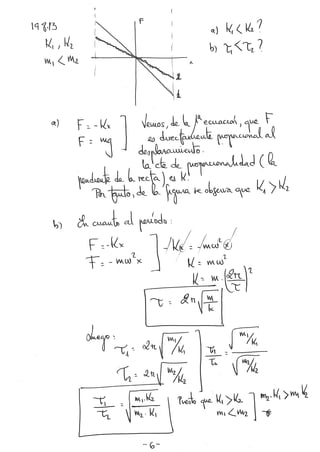 19.8.13
F
a) K₁ < K₂ ?
K₁, K₂
b) τ₁ < τ₂ ?
m₁ < m₂
2
1
a) F = -Kx
F = mg
Vemos, de la 1ª ecuación, que F
es directamente proporcional al
desplazamiento.
La cte de proporcionalidad (la
pendiente de la recta) es K.
Por tanto, de la figura se observa que K₁ > K₂
b) En cuanto al período:
F = -Kx
F = -mω²x
-Kx = -mω²x
K = mω²
K = m·(2π/τ)²
τ = 2π√(m/k)
Luego:
τ₁ = 2π√(m₁/K₁)
τ₂ = 2π√(m₂/K₂)
τ₁/τ₂ = √(m₁/K₁)/√(m₂/K₂)
τ₁/τ₂ = √(m₁·K₂/m₂·K₁)
Puesto que K₁ > K₂
m₁ < m₂
m₂·K₁ > m₁K₂
-6-